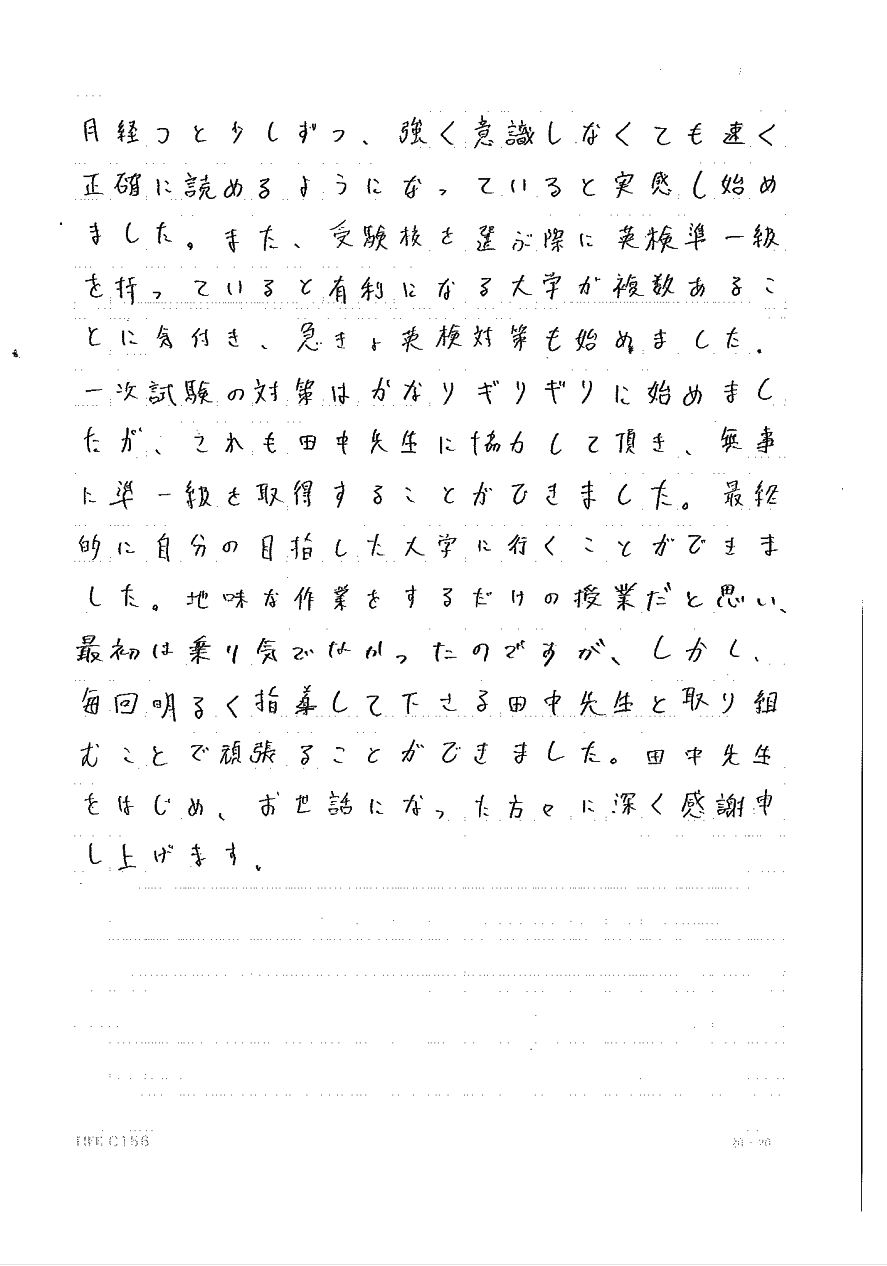 月経つと少しずつ、強く意識しなくても速く
正確に読めるようになっていると実感し始め
ました。また、受験校を選ぶ際に英検準一級
を持っていると有利になる大学が複数あるこ
とに気付き、急きょ英検対策も始めました。
一次試験の対策はかなりギリギリに始めまし
たが、それも田中先生に協力して頂き、無事
に準一級を取得することができました。最終
的に自分の目指した大学に行くことができま
した。地味な作業をするだけの授業だと思い、
最初は乗り気でなかったのですが、しかし、
毎回明るく指導して下さる田中先生と取り組
むことで頑張ることができました。田中先生
をはじめ、お世話になった方々に深く感謝申
し上げます。
LIFE C156 20×20